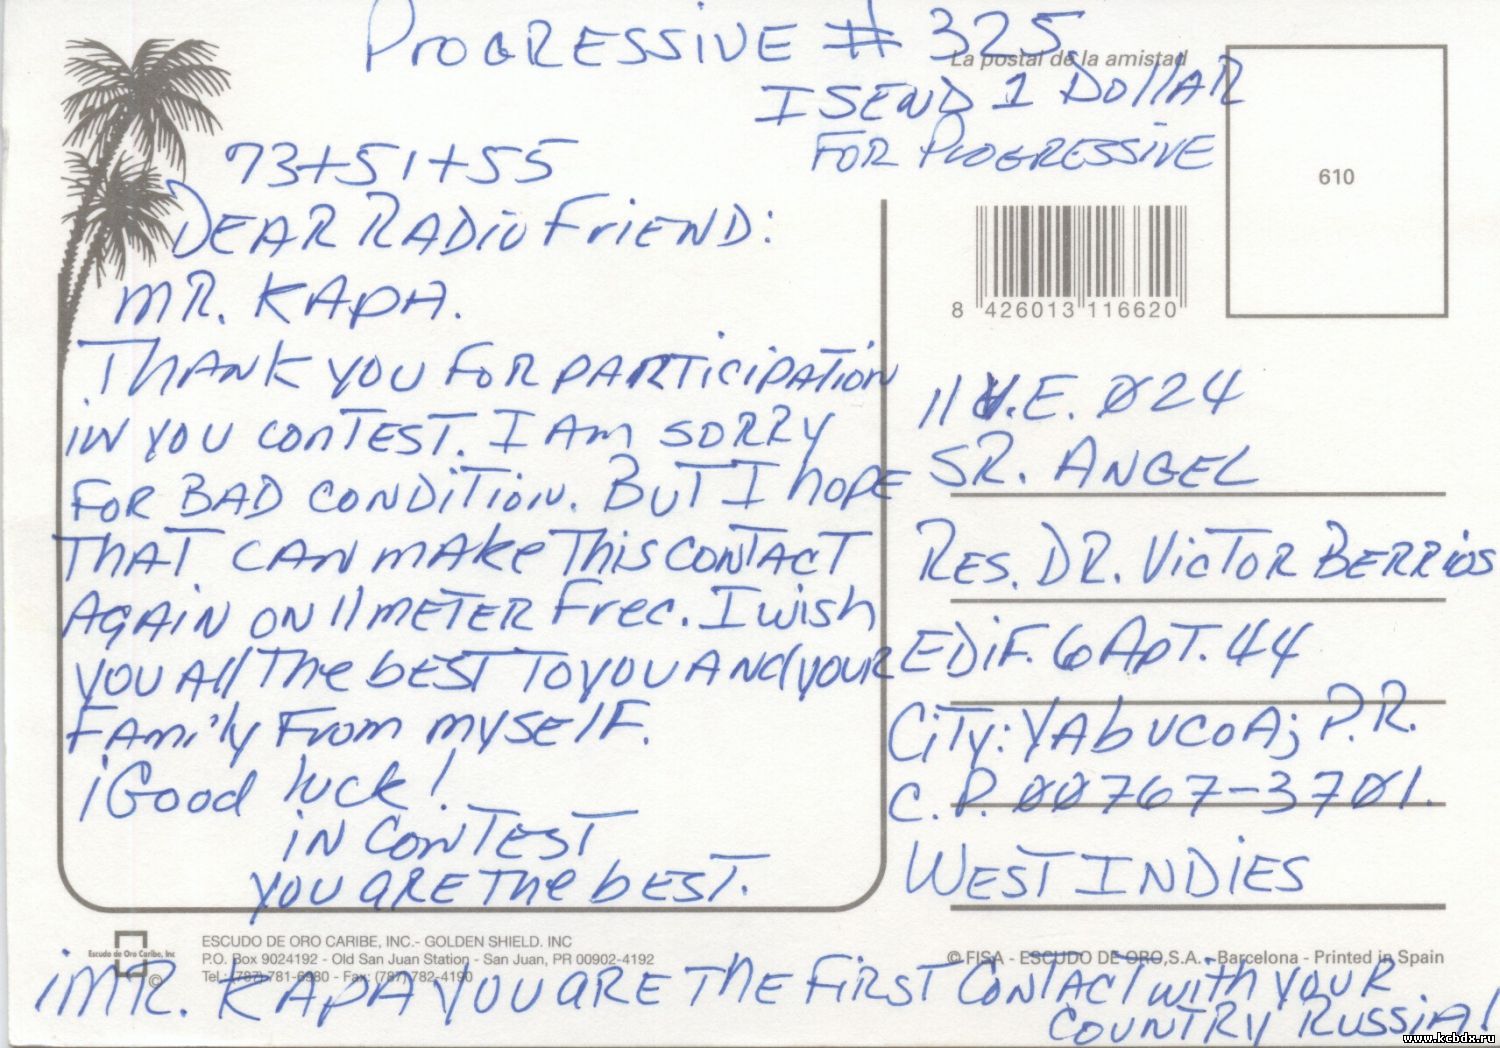 PROGRESSIVE # 325
La postal de la amistad
I SEND 1 DOLLAR
FOR PROGRESSIVE
610
73+51+55
DEAR RADIO FRIEND:
MR. KAPA.
THANK YOU FOR PARTICIPATION
IN YOU CONTEST. I AM SORRY
FOR BAD CONDITION. BUT I hOPE
THAT CAN MAKE THIS CONTACT
AGAIN ON 11 METER FREC. I WISH
YOU ALL THE BEST TO YOU AND YOUR
FAMILY FROM MYSELF.
¡GOOD LUCK!
IN CONTEST
YOU ARE THE BEST.
8 426013 116620
11 V.E. 024
SR. ANGEL
RES. DR. VICTOR BERRIOS
EDIF. 6 APT. 44
CITY: YABUCOA; P.R.
C.P. 00767-3701.
WEST INDIES
Escudo de Oro Caribe, Inc
©
ESCUDO DE ORO CARIBE, INC.- GOLDEN SHIELD. INC
P.O. Box 9024192 - Old San Juan Station - San Juan, PR 00902-4192
Tel.: (787) 781-6980 - Fax: (787) 782-4190
© FISA - ESCUDO DE ORO, S.A. - Barcelona - Printed in Spain
¡MR. KAPA YOU ARE THE FIRST CONTACT WITH YOUR
COUNTRY RUSSIA!
www.kcbdx.ru